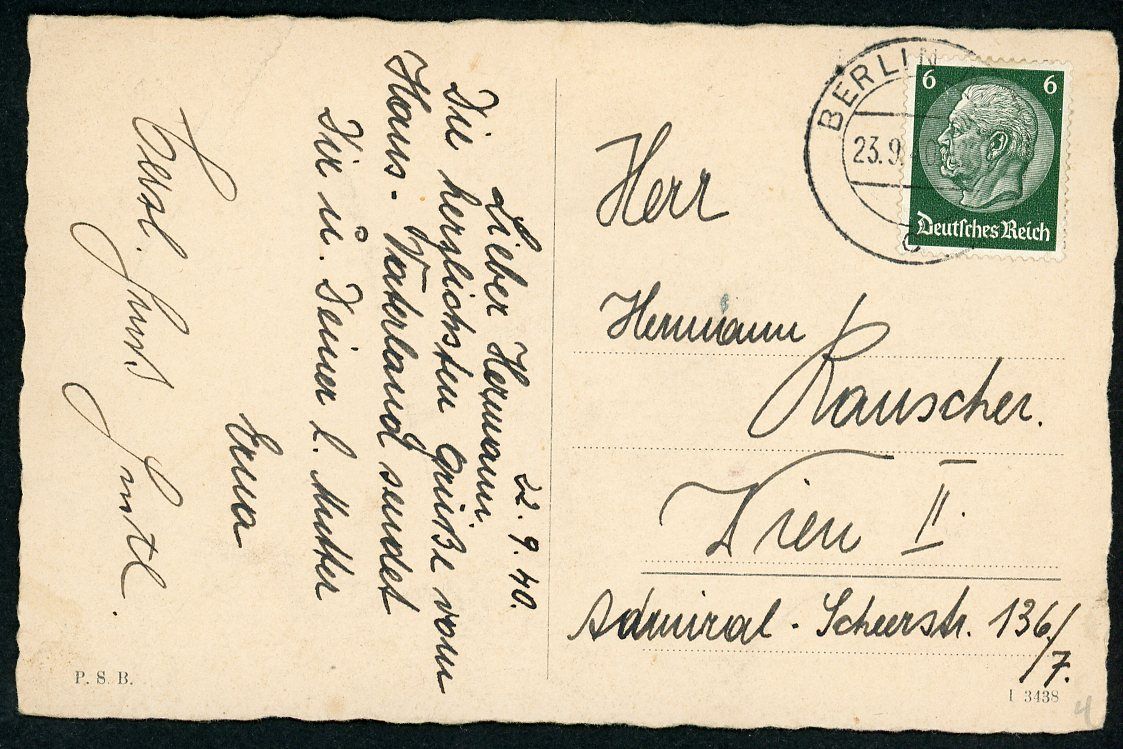 22. 9. 40.
Lieber Hermann
Die herzlichsten Grüße vom
Haus-Vaterland sendet
Dir u. Deiner l. Mutter
Erna
BERLIN
23.9.
C
6 6
Deutsches Reich
Herr
Hermann
Rauscher.
Wien II.
Admiral-Scheerstr. 136/
7.
P. S. B.
I 3438
4